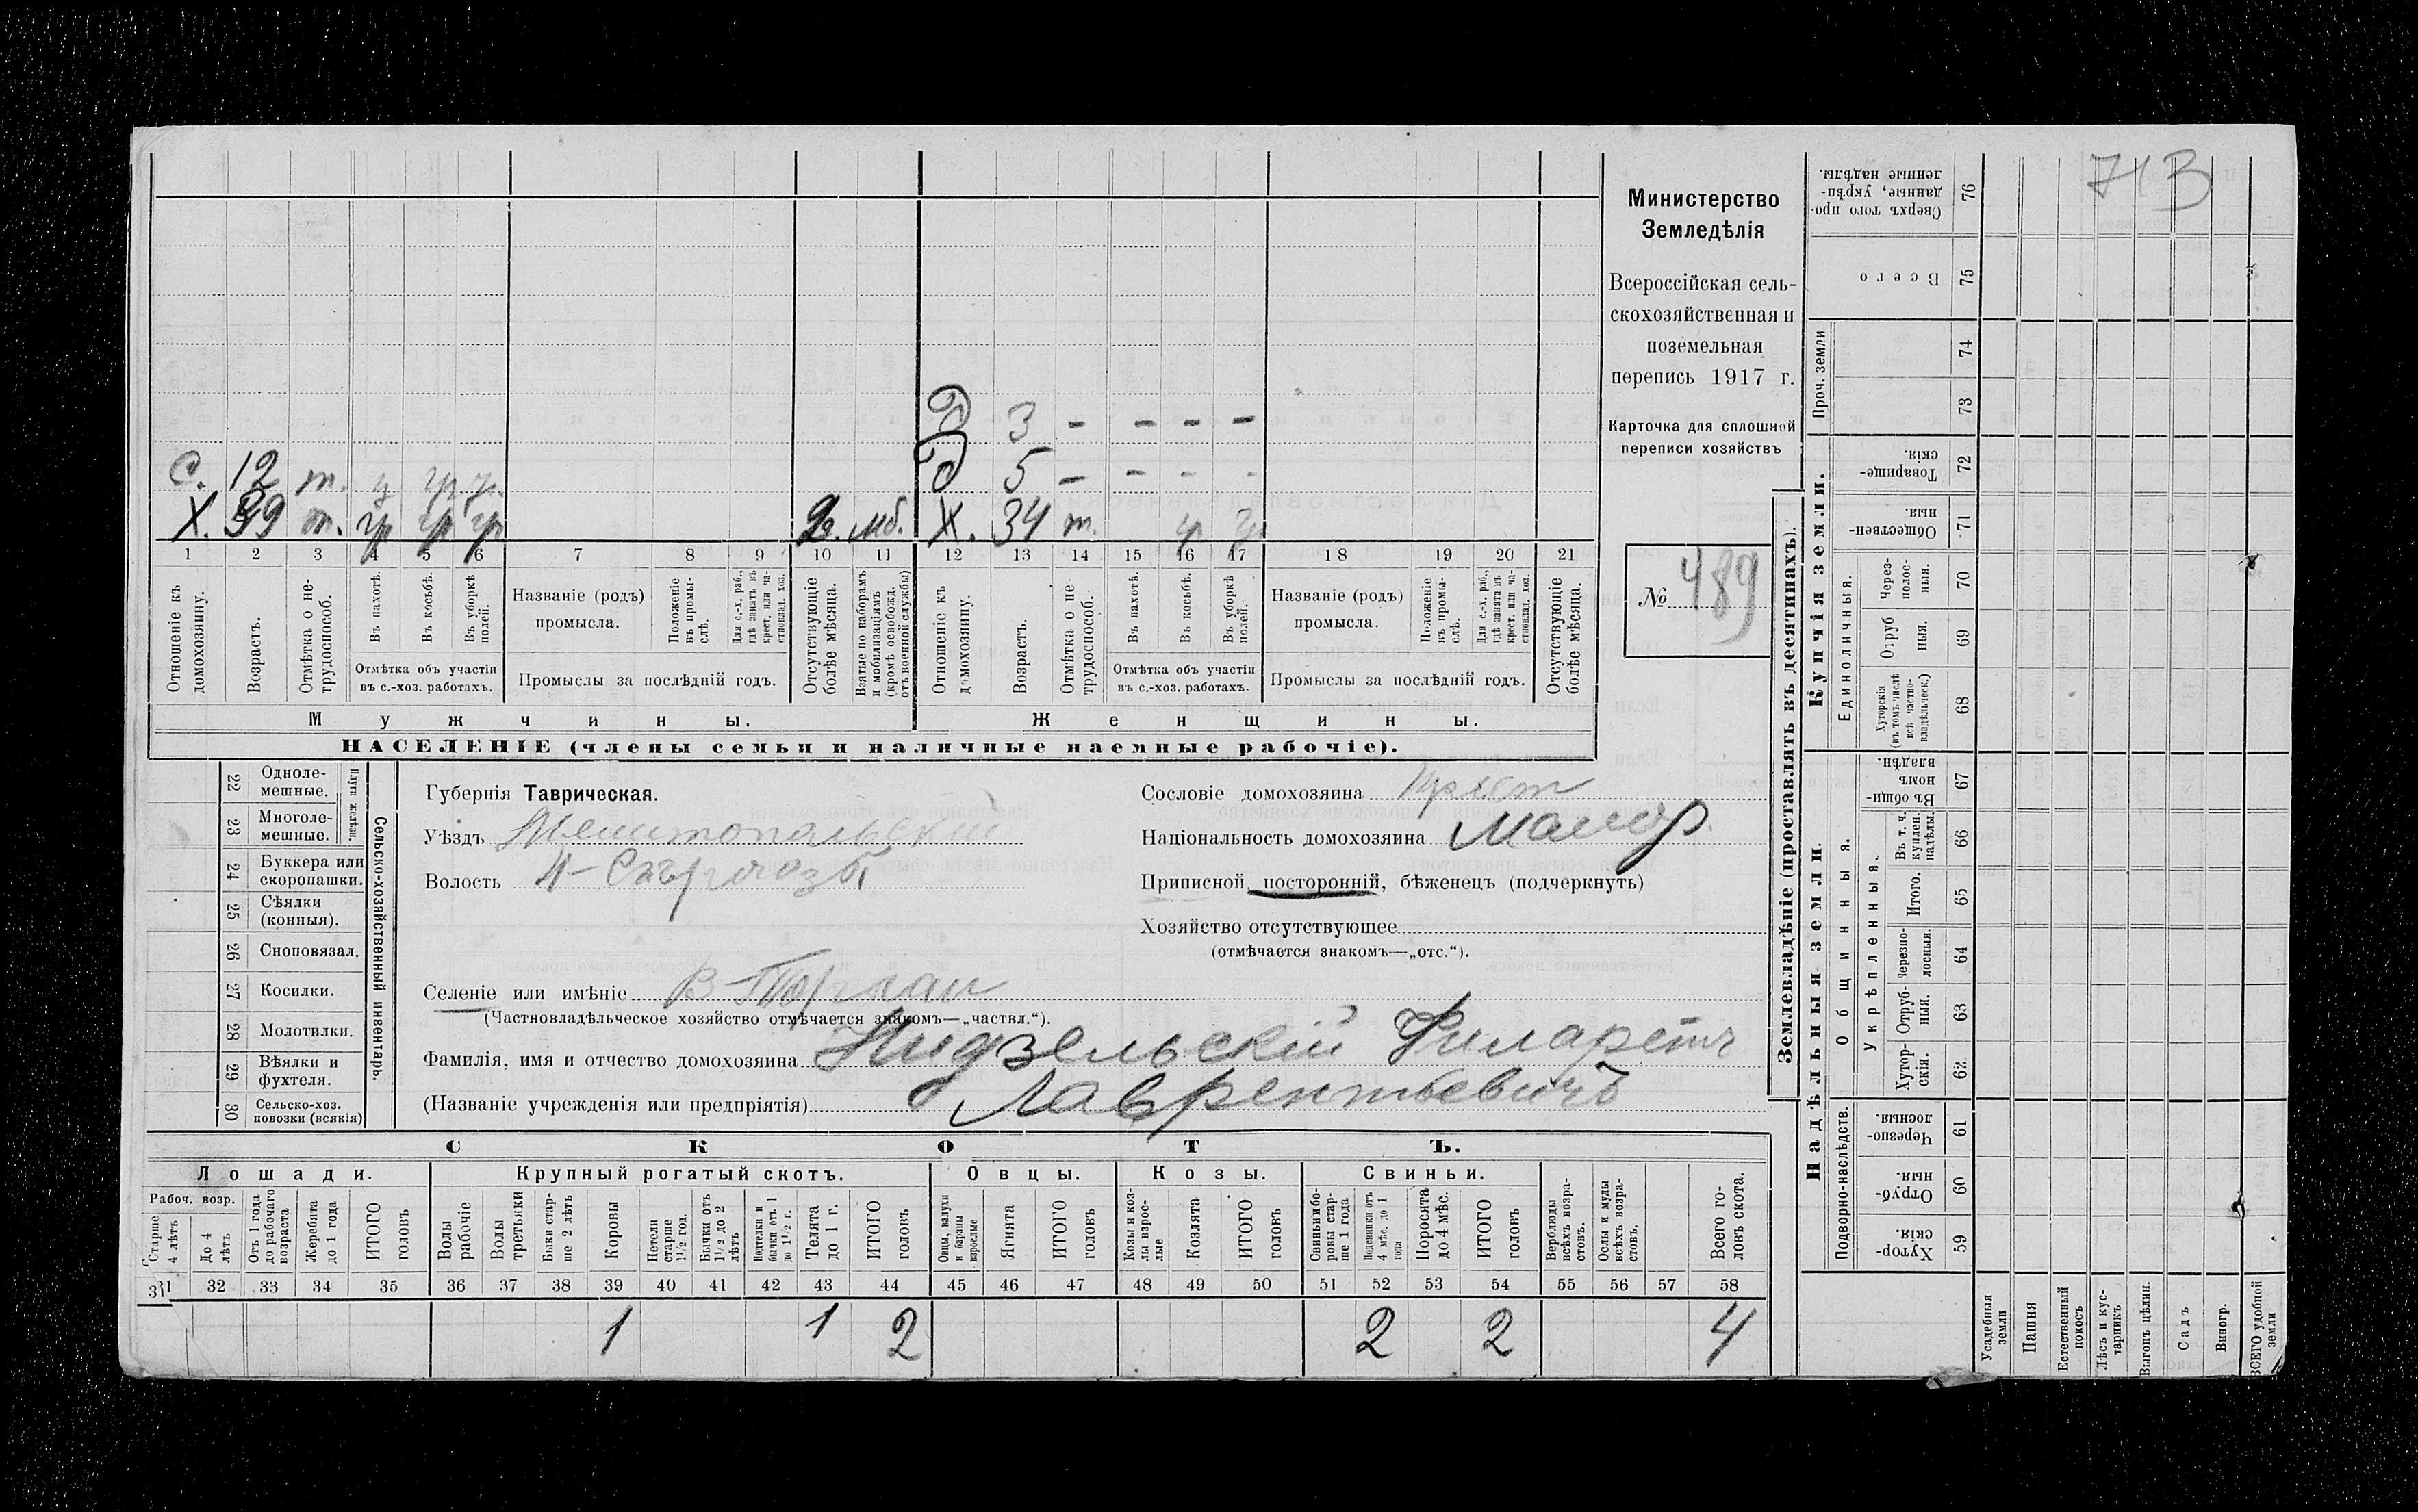 71 В
Министерство
Земледѣлія
Всероссійская сель-
скохозяйственная и
поземельная
перепись 1917 г.
Карточка для сплошной
переписи хозяйствъ
№ 489
Д 3 - - - -
С. 12 т. Д 5 - - - -
Х. 39 т. гр гр гр мб. Х. 34 т.
1 2 3 4 5 6 7 8 9 10 11 12 13 14 15 16 17 18 19 20 21
Отношеніе къ домохозяину.
Возрастъ.
Отмѣтка о не-трудоспособ.
Въ пахотѣ.
Въ косьбѣ.
Въ уборкѣ полей.
Отмѣтка объ участіи
въ с.-хоз. работахъ.
Названіе (родъ)
промысла.
Положеніе въ промы-слѣ.
Для с.-х. раб., гдѣ занятъ въ крест. или ча-стновлад. хоз.
Промыслы за послѣдній годъ.
Отсутствующіе болѣе мѣсяца.
Взятые по наборамъ и мобилизаціямъ (кромѣ освобожд. отъ военной службы)
Отношеніе къ домохозяину.
Возрастъ.
Отмѣтка о не трудоспособ.
Въ пахотѣ.
Въ косьбѣ.
Въ уборкѣ полей.
Отмѣтка объ участіи
въ с.-хоз. работахъ.
Названіе (родъ)
промысла.
Положеніе въ промы-слѣ.
Для с.-х. раб., гдѣ занята въ крест. или ча-стновлад. хоз.
Промыслы за послѣдній годъ.
Отсутствующіе болѣе мѣсяца.
Мужчины. Женщины.
НАСЕЛЕНІЕ (члены семьи и наличные наемные рабочіе).
22 Одноле-мешные.
23 Многоле-мешные.
Плуги желѣзн.
24 Буккера или скоропашки.
25 Сѣялки (конныя).
26 Сноповязал.
27 Косилки.
28 Молотилки.
29 Вѣялки и фухтеля.
30 Сельско-хоз. повозки (всякія)
Сельско-хозяйственный инвентарь.
Губернія Таврическая.
Уѣздъ Мелитопольскій
Волость
Селеніе или имѣніе
(Частновладѣльческое хозяйство отмѣчается знакомъ—„частвл.“).
Фамилія, имя и отчество домохозяина Нидзельскій Филаретъ
(Названіе учрежденія или предпріятія) Лаврентьевичъ
Сословіе домохозяина крест
Національность домохозяина малор.
Приписной, посторонній, бѣженецъ (подчеркнуть)
Хозяйство отсутствующее
(отмѣчается знакомъ—„отс.“).
СКОТЪ.
Лошади. Крупный рогатый скотъ. Овцы. Козы. Свиньи.
Рабоч. возр.
Старше 4 лѣтъ
До 4 лѣтъ
Отъ 1 года до рабочаго возраста
Жеребята до 1 года
ИТОГО головъ
Волы рабочіе
Волы третьяки
Быки стар-ше 2 лѣтъ
Коровы
Нетели старше 1½ год.
Бычки отъ 1½ до 2 лѣтъ
Нетелки и бычки отъ 1 до 1½ г.
Телята до 1 г.
ИТОГО головъ
Овцы, валухи и бараны взрослые
Ягнята
ИТОГО головъ
Козы и коз-лы взрос-лые
Козлята
ИТОГО головъ
Свиньи и бо-ровы стар-ше 1 года
Подсвинки отъ 4 мѣс. до 1 года
Поросята до 4 мѣс.
ИТОГО головъ
Верблюды всѣхъ возра-стовъ.
Ослы и мулы всѣхъ возра-стовъ.
Всего го-ловъ скота.
31 32 33 34 35 36 37 38 39 40 41 42 43 44 45 46 47 48 49 50 51 52 53 54 55 56 57 58
1 1 2 2 2 4
Землевладѣніе (проставлять въ десятинахъ).
Купчія земли.
Надѣльныя земли.
Проч. земли
Единоличныя.
Общинныя.
Укрѣпленныя.
Подворно-наслѣдств.
Сверхъ того про-данные, укрѣп-ленные надѣлы. 76
Всего 75
74
73
Товарище-скія. 72
Обществен-ныя 71
Через-полос-ныя. 70
Отруб ныя. 69
Хуторскія (въ томъ числѣ всѣ частно-владѣльческ.) 68
Въ общин-номъ владѣн. 67
Въ т. ч. куплен. надѣлы. 66
Итого. 65
Черезпо-лосныя. 64
Отруб-ныя. 63
Хутор-скія. 62
Черезпо-лосныя. 61
Отруб-ныя. 60
Хутор-скія. 59
Усадебныя земли
Пашня
Естественный покосъ
Лѣсъ и кус-тарникъ
Выгонъ цѣлин.
Садъ
Виногр.
ВСЕГО удобной земли